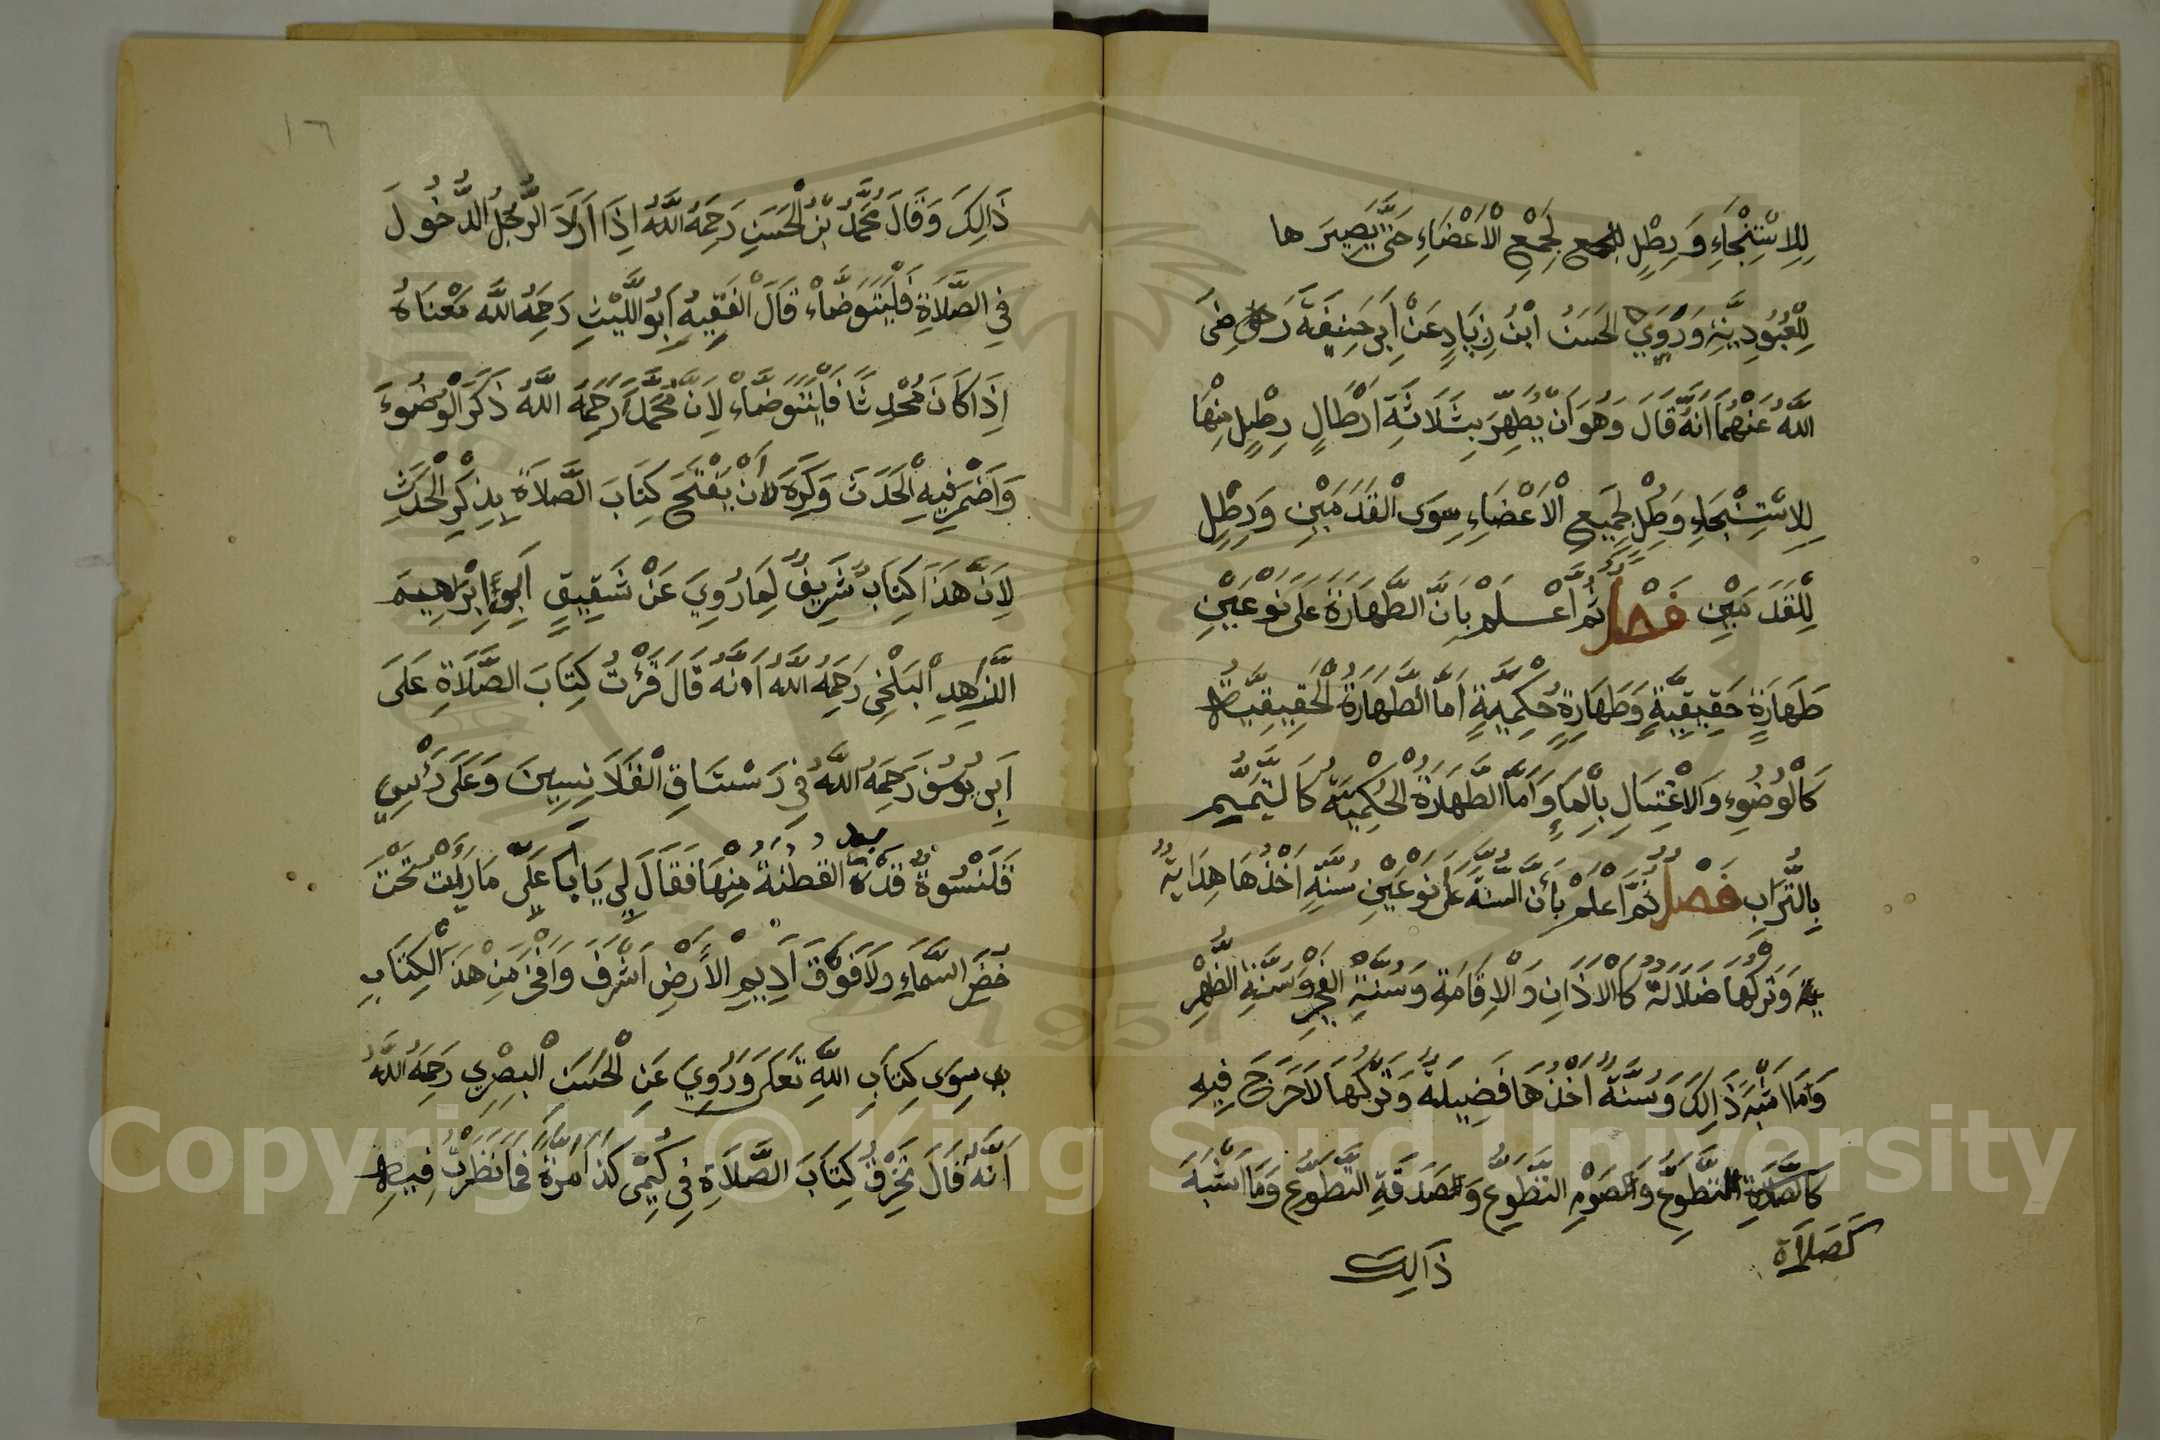 لِلِاسْتِنْجَاءِ وَرِطْلٍ لِجَمْعِ الْاَعْضَاءِ حَتَّى يَصِيرَ ها
لِلْعُبُودِيَّةِ وَرُوِيَ الحَسَنُ ابْنُ زِيَادٍ عَنْ اَبِى حَنِيفَةَ رَضِىَ
اللّٰهُ عَنْهُمَا اَنَّهُ قَالَ وَهُوَ اَنْ يُطَهِّرَ بِثَلَاثَةِ اَرْطَالٍ رِطْلٍ مِنْهَا
لِلِاسْتِنْجَاءِ وَرِطْلٍ لِجَمِيعِ الْاَعْضَاءِ سِوَى الْقَدَمَيْنِ وَرِطْلٍ
لِلْقَدَمَيْنِ فَصْلٌ ثُمَّ اَعْلَمْ بِاَنَّ الطَّهَارَةَ عَلَى نَوْعَيْنِ
طَهَارَةٍ حَقِيقِيَّةٍ وَطَهَارَةٍ حُكْمِيَّةٍ اَمَّا الطَّهَارَةُ الْحَقِيقِيَّةُ
كَالْوُضُوءِ وَالْاغْتِسَالِ بِالْمَاءِ وَاَمَّا الطَّهَارَةُ الْحُكْمِيَّةُ كَالتَّيَمُّمِ
بِالتُّرَابِ فَصْلٌ ثُمَّ اعْلَمْ بِأَنَّ السُّنَّةَ عَلَى نَوْعَيْنِ سُنَّةٍ اَخْذُهَا هِدَايَةٌ
وَتَرْكُهَا ضَلَالَةٌ كَالْاَذَانِ وَالْاِقَامَةِ وَسُنَّةِ الفَجْرِ وَسُنَّةِ الظُّهْرِ
وَمَا اشْبَهَ ذَالِكَ وَسُنَّةٌ اَخْذُهَا فَضِيلَةٌ وَتَرْكُهَا لَاحَرَجَ فِيهِ
كَالصَّلَاةِ التَّطَوُّعِ وَالصَوْمِ التَّطَوُّعِ وَالصَدَقَةِ التَّطَوُّعِ وَمَا اَشْبَهَ
كَصَلَاةِ
ذَالِكَ
١٦
ذَالِكَ وَقَالَ مُحَمَّدُ بْنُ الْحَسَنِ رَحِمَهُ اللّٰهُ اِذَا اَرَادَ الرَّجُلُ الدُّخُولَ
فِى الصَّلَاةِ فَلْيَتَوَضَّاءْ قَالَ الْفَقِيهُ اَبُو اللَّيْثِ رَحِمَهُ اللّٰه مَعْنَاهُ
اِذَا كَانَ مُحْدِثًا فَلْيَتَوَضَّاءْ لِاَنَّ مُحَمَّدً رَحِمَهُ اللّٰهُ ذَكَرَ الْوُضُوءَ
وَاَضْمَرَ فِيهِ الْحَدَثَ وَكَرِهَ لِاَنْ يَفْتَحَ كِتَابَ الصَّلَاةِ بِذِكْرِ الْحَدَثِ
لِاَنَّ هَذَا كِتَابٌ شَرِيفٌ لِمَا رُوِيَ عَنْ شَقِيقٍ اَبِى اِبْرَاهِيمَ
الزَّاهِدِ الْبَلْخِى رَحِمَهُ اللّٰهُ اَنَّهُ قَالَ قَرَءْتُ كِتَابَ الصَّلَاةِ عَلَى
اَبِى يُوسُفَ رَحِمَهُ اللّٰهُ فِى رَسْتَاقِ الْقَلَانِسِينَ وَعَلَى رَأْسِى
قَلَنْسُوَةٌ قَدْ القُطْنَةُ مِنْهَا فَقَالَ لِى يَا بَا عَلِىِّ مَا رَايْتُ تَحْتَ
خُضَرِ السَّمَاءِ وَلَا فَوْقَ اَدِيمِ الْاَرْضِ اَشْرَفَ وَاَفْخَرَ مِنْ هذَا الْكِتَابِ
سِوَى كِتَابِ اللّٰهِ تَعَالَى وَرُوِيَ عَنِ الْحَسَنِ الْبِصْرِى رَحِمَهُ اللّٰهُ
اَنَّهُ قَالَ تَخَرَّقَ كِتَابَ الصَّلَاةِ فِى كُمِّى كَذَا مَرَّةً فَمَا نَظَرْتُ فِيهِ
Copyright © King Saud University
1957